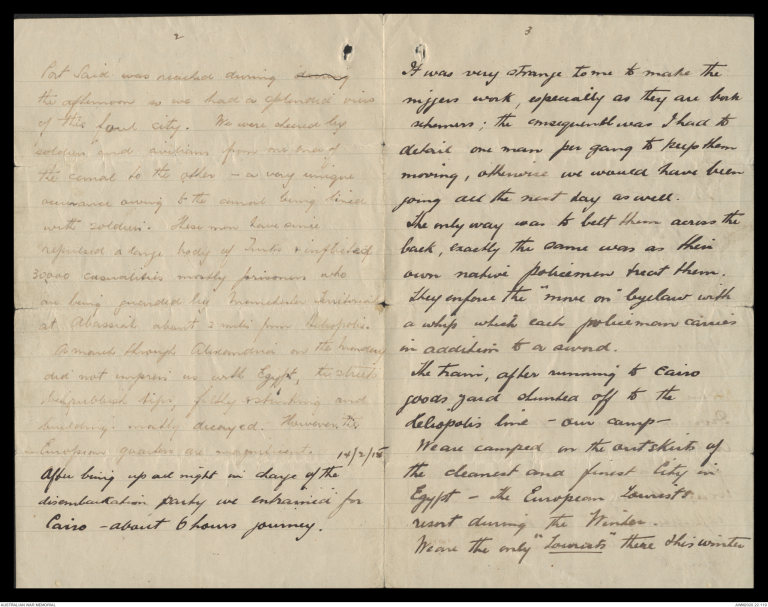 2
Port Said was reached during
the afternoon so we had a splendid view
of this foul city. We were cheered by
soldiers and civilians from one end of
the canal to the other - a very unique
occurance owing to the canal being lined
with soldiers. These men have since
repulsed a large body of Turks & inflicted
30000 casualities mostly prisoners who
are being guarded by Manchester Territorials
at Abassia about 2 miles from Heliopolis.
A march through Alexandria on the Monday
did not impress us with Egypt, the streets
rubbish tips, filthy & stinking and
buildings mostly decayed. However the
European quarters are magnificent.
14/2/15
After being up all night in charge of the
disembarkation party we entrained for
Cairo - about 6 hours journey.
3
It was very strange to me to make the
niggers work, especially as they are born
schemers; the consequence was I had to
detail one man per gang to keep them
moving, otherwise we would have been
going all the next day as well.
The only way was to belt them across the
back, exactly the same was as their
own native policemen treat them.
They enforce the "move on" byelaw with
a whip which each policeman carries
in addition to a sword.
The train, after running to Cairo
goods yard shunted off to the
Heliopolis line - our camp -
We are camped on the outskirts of
the cleanest and finest City in
Egypt - the European Tourists
resort during the Winter.
We are the only "Tourists" there this winter
AUSTRALIAN WAR MEMORIAL